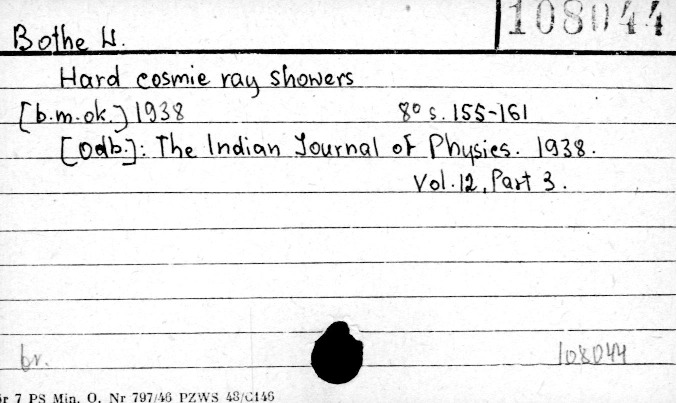 108044
Bothe W.
Hard cosmie ray showers
[b.m.ok.] 1938 8° s. 155-161
[Odb.]: The Indian Journal of Physics. 1938.
Vol. 12, Part 3.
br. 108044
r 7 PS Min. O. Nr 797/46 PZWS 48/C146